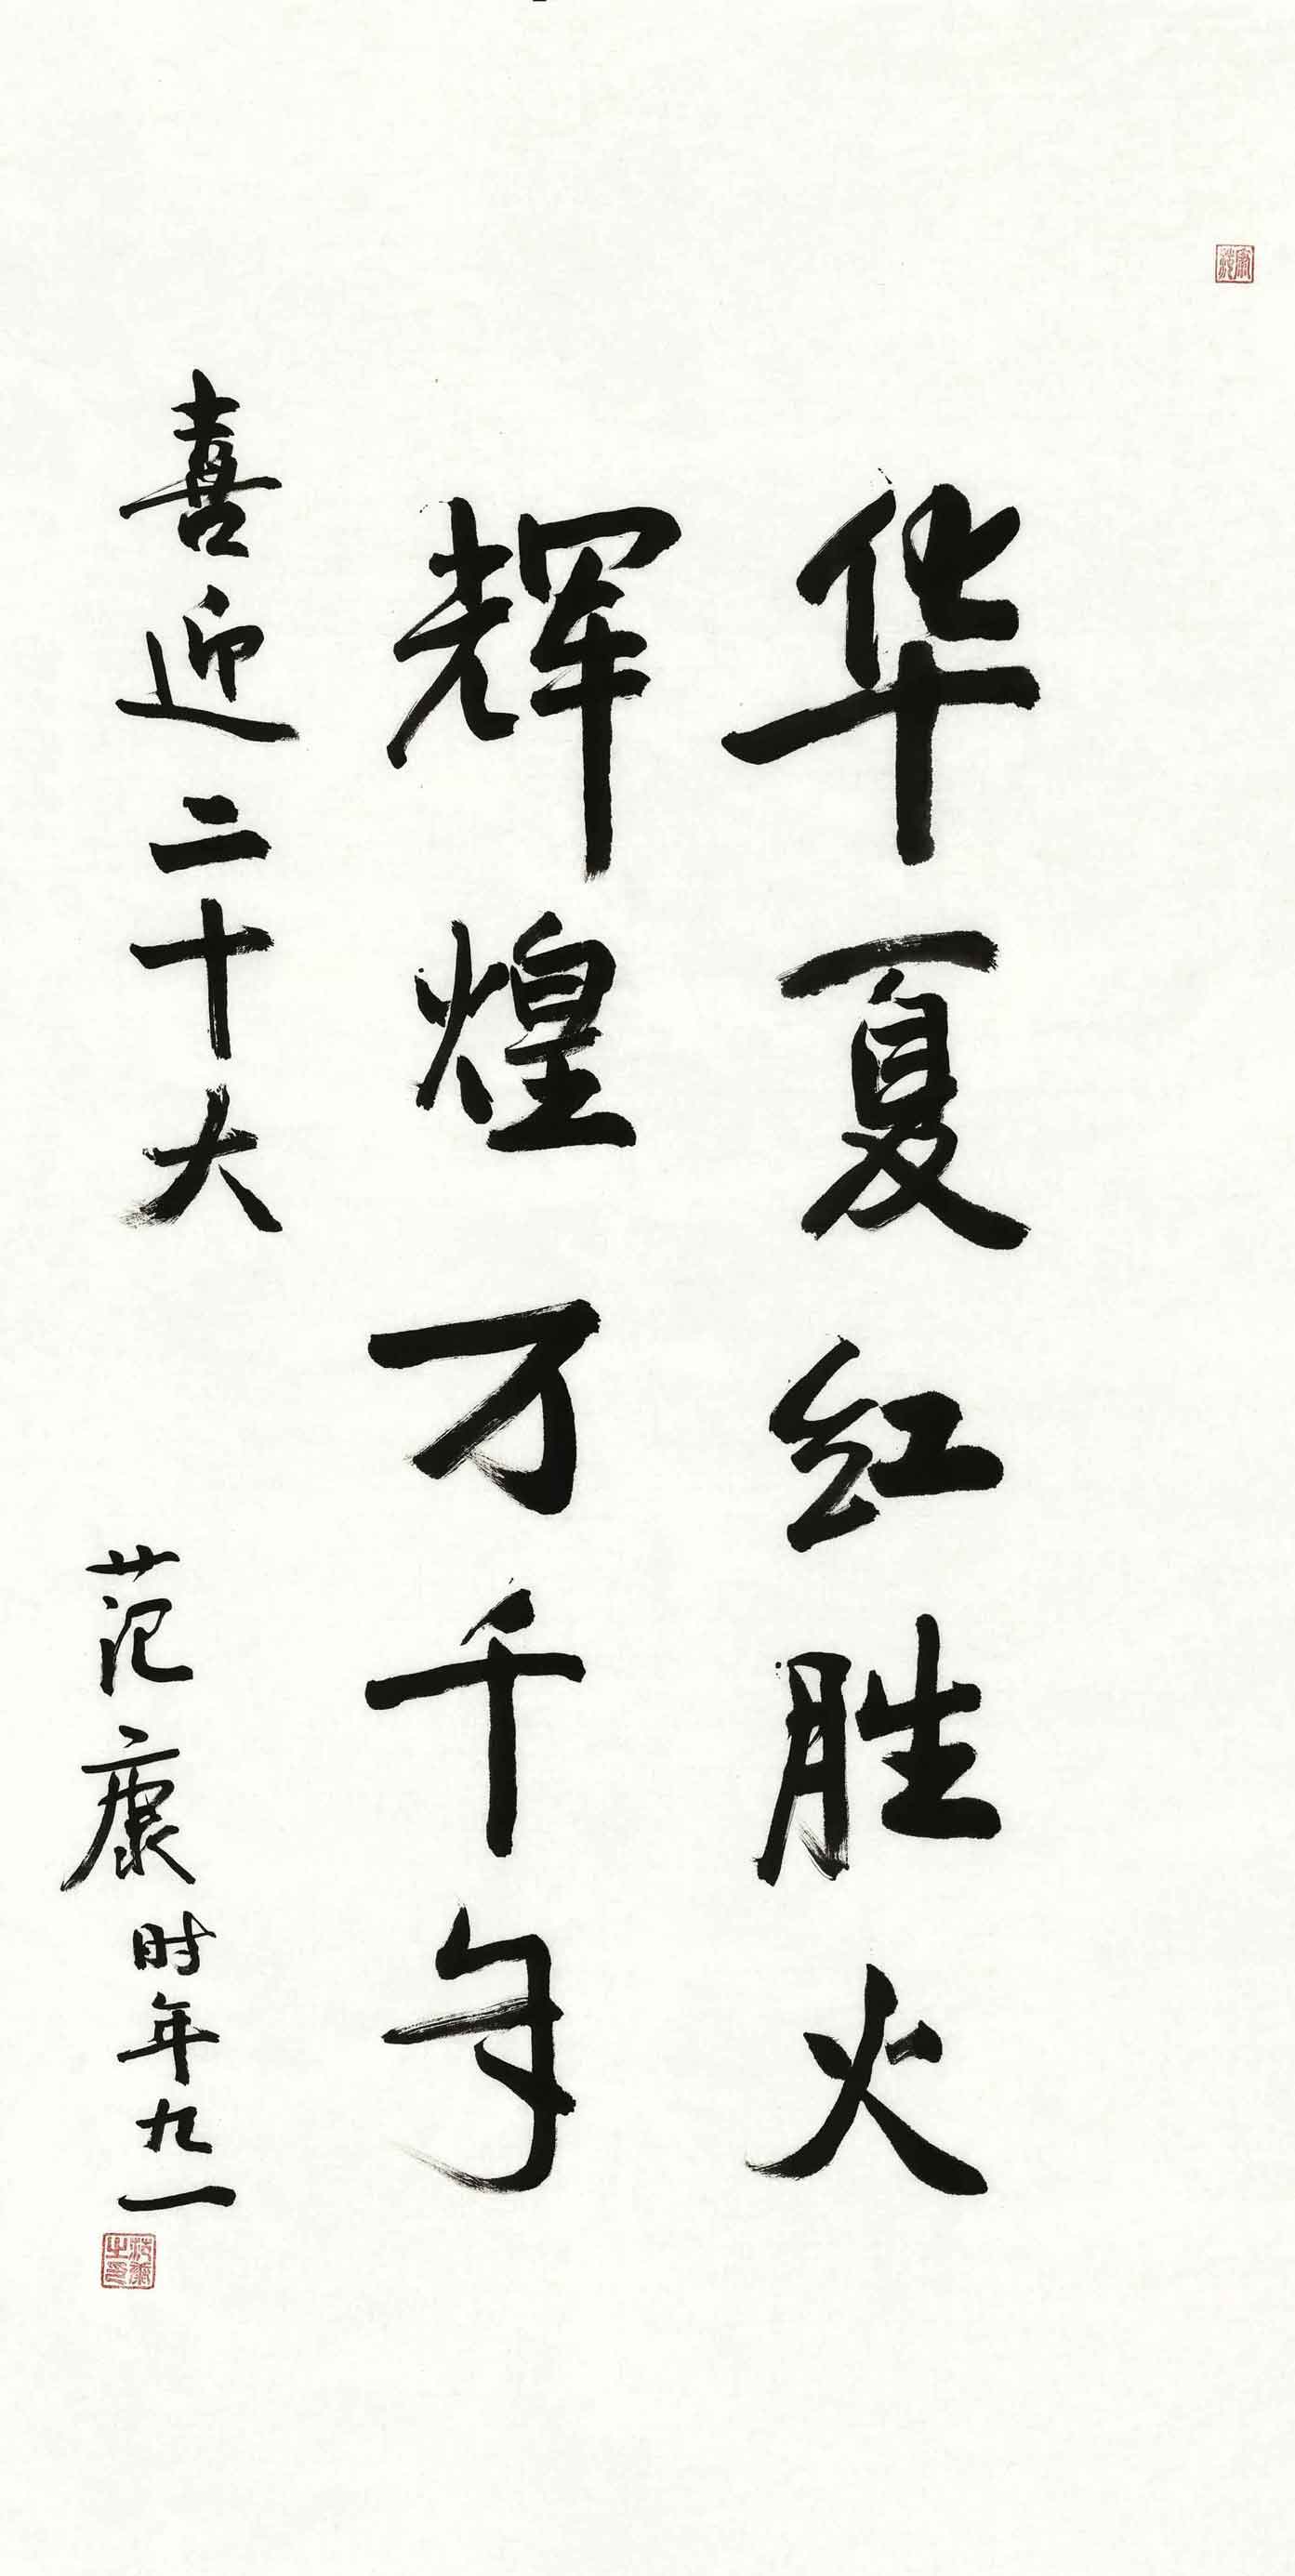 华夏红胜火
辉煌万千年
喜迎二十大
范康时年九一
范康之印